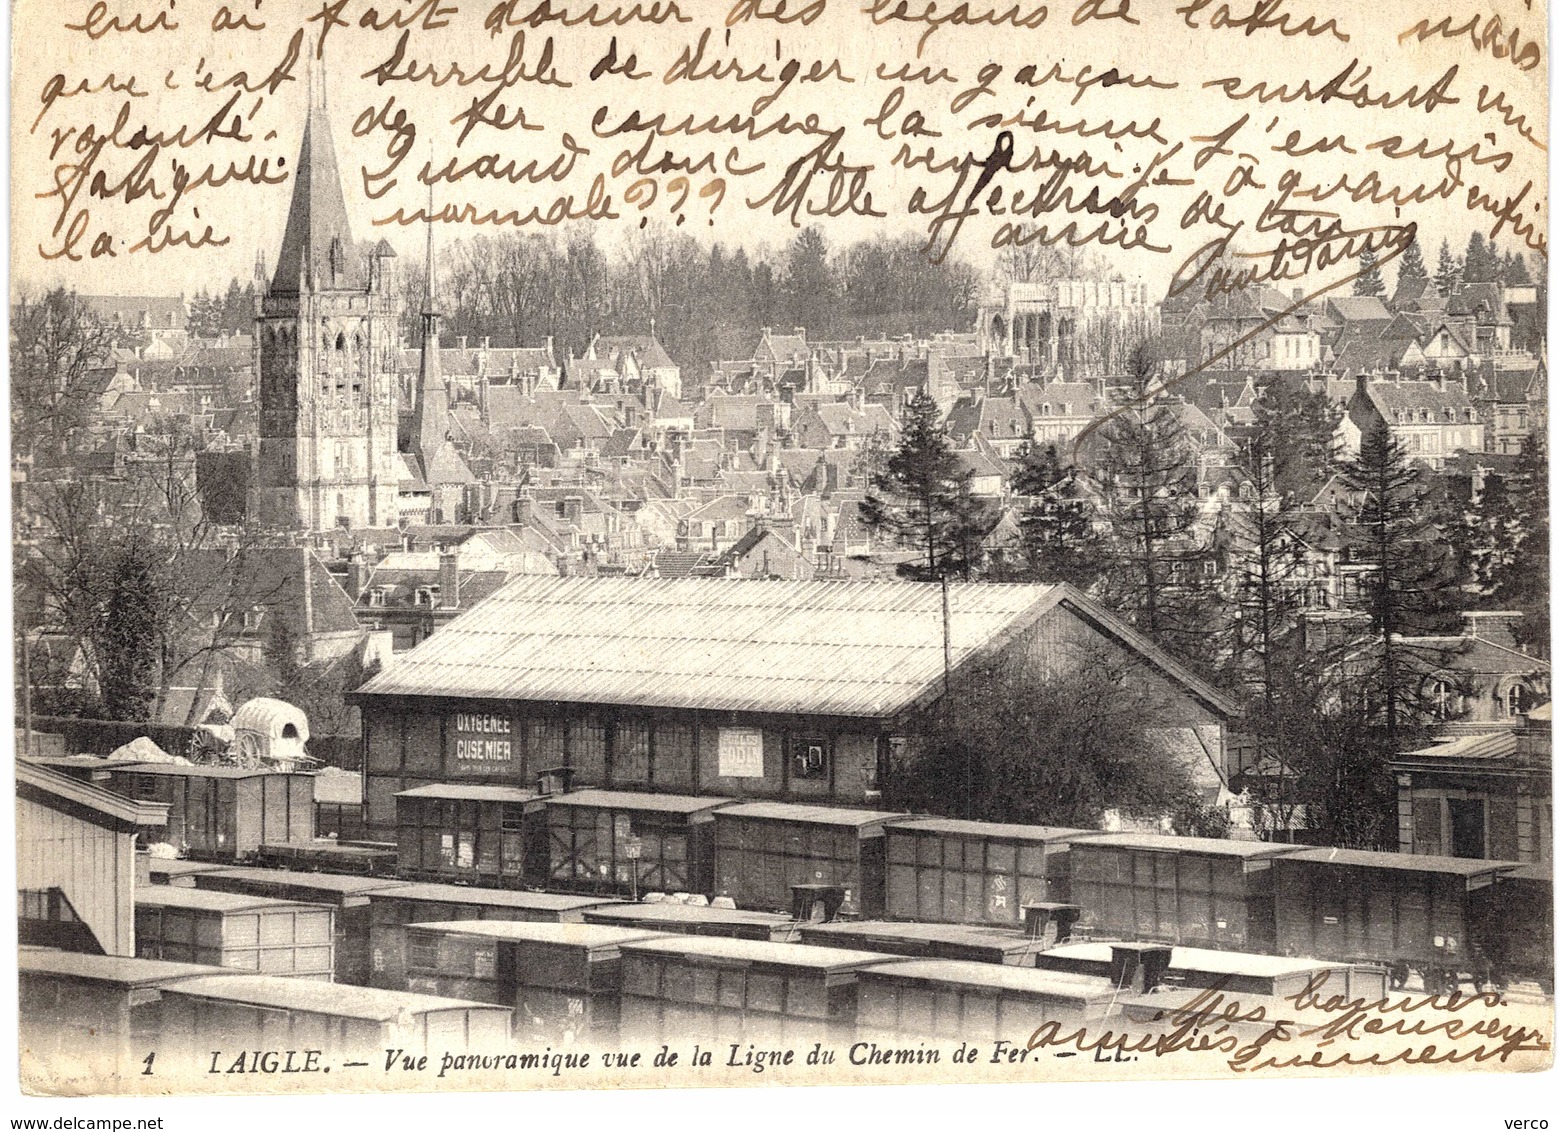 lui ai fait donner des leçons de latin mais
que c'est terrible de diriger un garçon surtout une
volonté de fer comme la sienne J'en suis
fatiguée. Quand donc te reverrai-je à quand enfin
la vie normale??? Mille affections de ton
amie
OXYGENEE
CUSENIER
Mes bonnes
amitiés à Monsieur
Quément
1 LAIGLE. — Vue panoramique vue de la Ligne du Chemin de Fer. — LL.
www.delcampe.net
verco